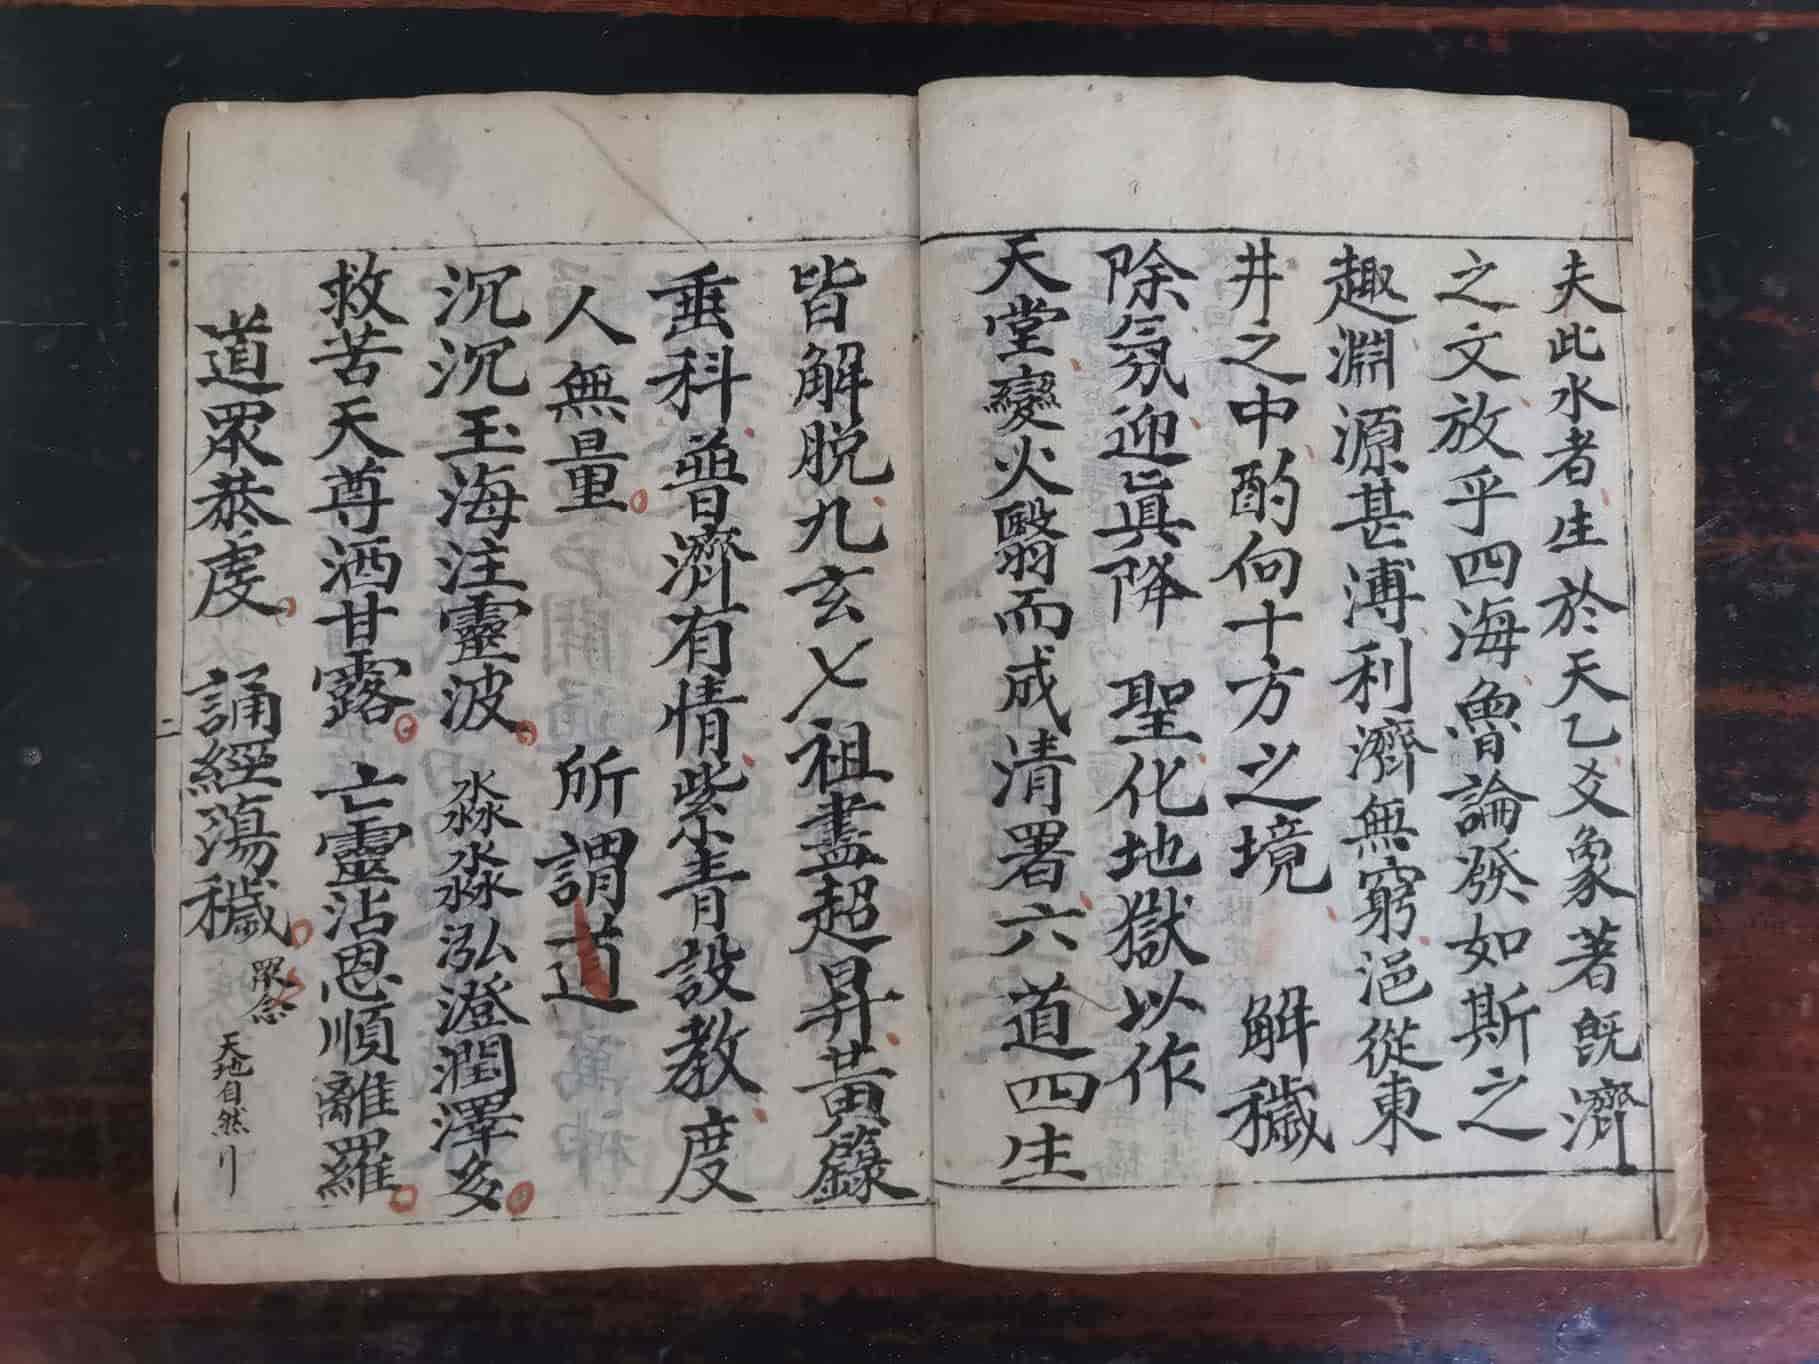 夫此水者生於天乙爻象著既濟
之文放乎四海魯論發如斯之
趣淵源甚溥利濟無窮浥從東
井之中酌向十方之境 解穢
除氛迎真降 聖化地獄以作
天堂變火翳而成清署六道四生
皆解脱九玄七祖盡超昇黃籙
垂科普濟有情紫青設教度
人無量 所謂道
沉沉玉海注靈波 淼淼泓澄潤澤多
救苦天尊洒甘露 亡靈沾恩順離羅
道眾恭虔 誦經蕩穢 眾念 天地自然刂
二